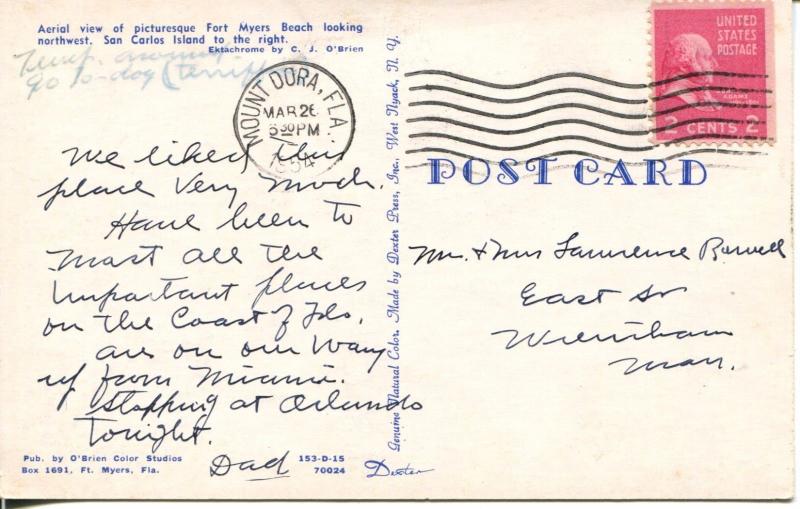 Aerial view of picturesque Fort Myers Beach looking
northwest. San Carlos Island to the right.
Ektachrome by C. J. O'Brien
Temp. around
90 to-day (terrific
We liked this
place Very Much.
Have been to
Most all the
Important places
on the Coast of Fla.
are on our Way
up from Miami.
Stopping at Orlando
Tonight.
Dad
Pub. by O'Brien Color Studios
Box 1691, Ft. Myers, Fla.
153-D-15
70024
Dexter
Genuine Natural Color. Made by Dexter Press, Inc., West Nyack, N. Y.
MOUNT DORA, FLA.
MAR 26
6 30 PM
1954
UNITED
STATES
POSTAGE
ADAMS
2 CENTS 2
POST CARD
Mr. & Mrs Lawrence
East St
Wrentham
Mass.